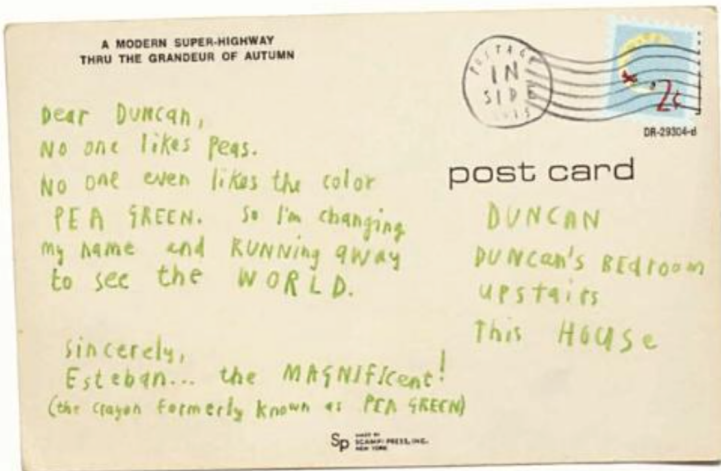 A MODERN SUPER-HIGHWAY
THRU THE GRANDEUR OF AUTUMN
Dear DUNCan,
No one likes Peas.
No one even likes the color
PEA GREEN. So I'm changing
my name and RUNNing away
to see the WORLD.
Sincerely,
Esteban... the MAGNIFICent!
(the crayon formerly known as PEA GREEN)
POSTAGE
IN
2¢
DR-29304-d
post card
DUNCAN
DUNCan's BEdroom
upstairs
This HOUSe
Sp
MADE BY
SCAMPI PRESS, INC.
NEW YORK